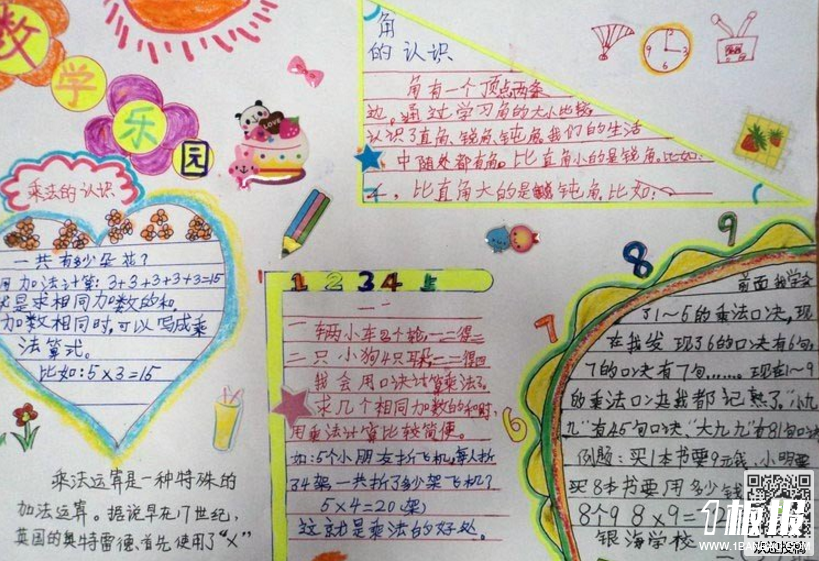 数
学
乐
园
乘法的认识
一共有多少朵花?
用加法计算:3+3+3+3+3=15
是求相同加数的和,
加数相同时,可以写成乘
法算式。
比如:5×3=15
乘法运算是一种特殊的
加法运算。据说早在17世纪,
英国的奥特雷德,首先使用了“×”
角
的认识
角有一个顶点两条
边。通过学习角的大小比较
认识了直角、锐角、钝角。我们的生活
中随处都有角。比直角小的是锐角。比如:
,比直角大的是钝角。比如:
LOVE
1 2 3 4
一二
一辆小车2个轮,一二得二
二只小狗4只耳,
我会用口诀计算乘法了。
求几个相同加数的和时,
用乘法计算比较简便。
如:5个小朋友折飞机,每人折
4架,一共折了多少架飞机?
5×4=20(架)
这就是乘法的好处。
6
7
8
9
前面我学会
了1~5的乘法口决,现
在我发现6的口决有6句,
7的口决有7句……。现在1~9
的乘法口决我都记熟了。“小九
九”有45句口决、“大九九”有81句口决
例题:买1本书要9元钱,小明要
买8本书要用多少钱
8个9 8×9=
银海学校
1板报
WWW.1BANBAO.COM